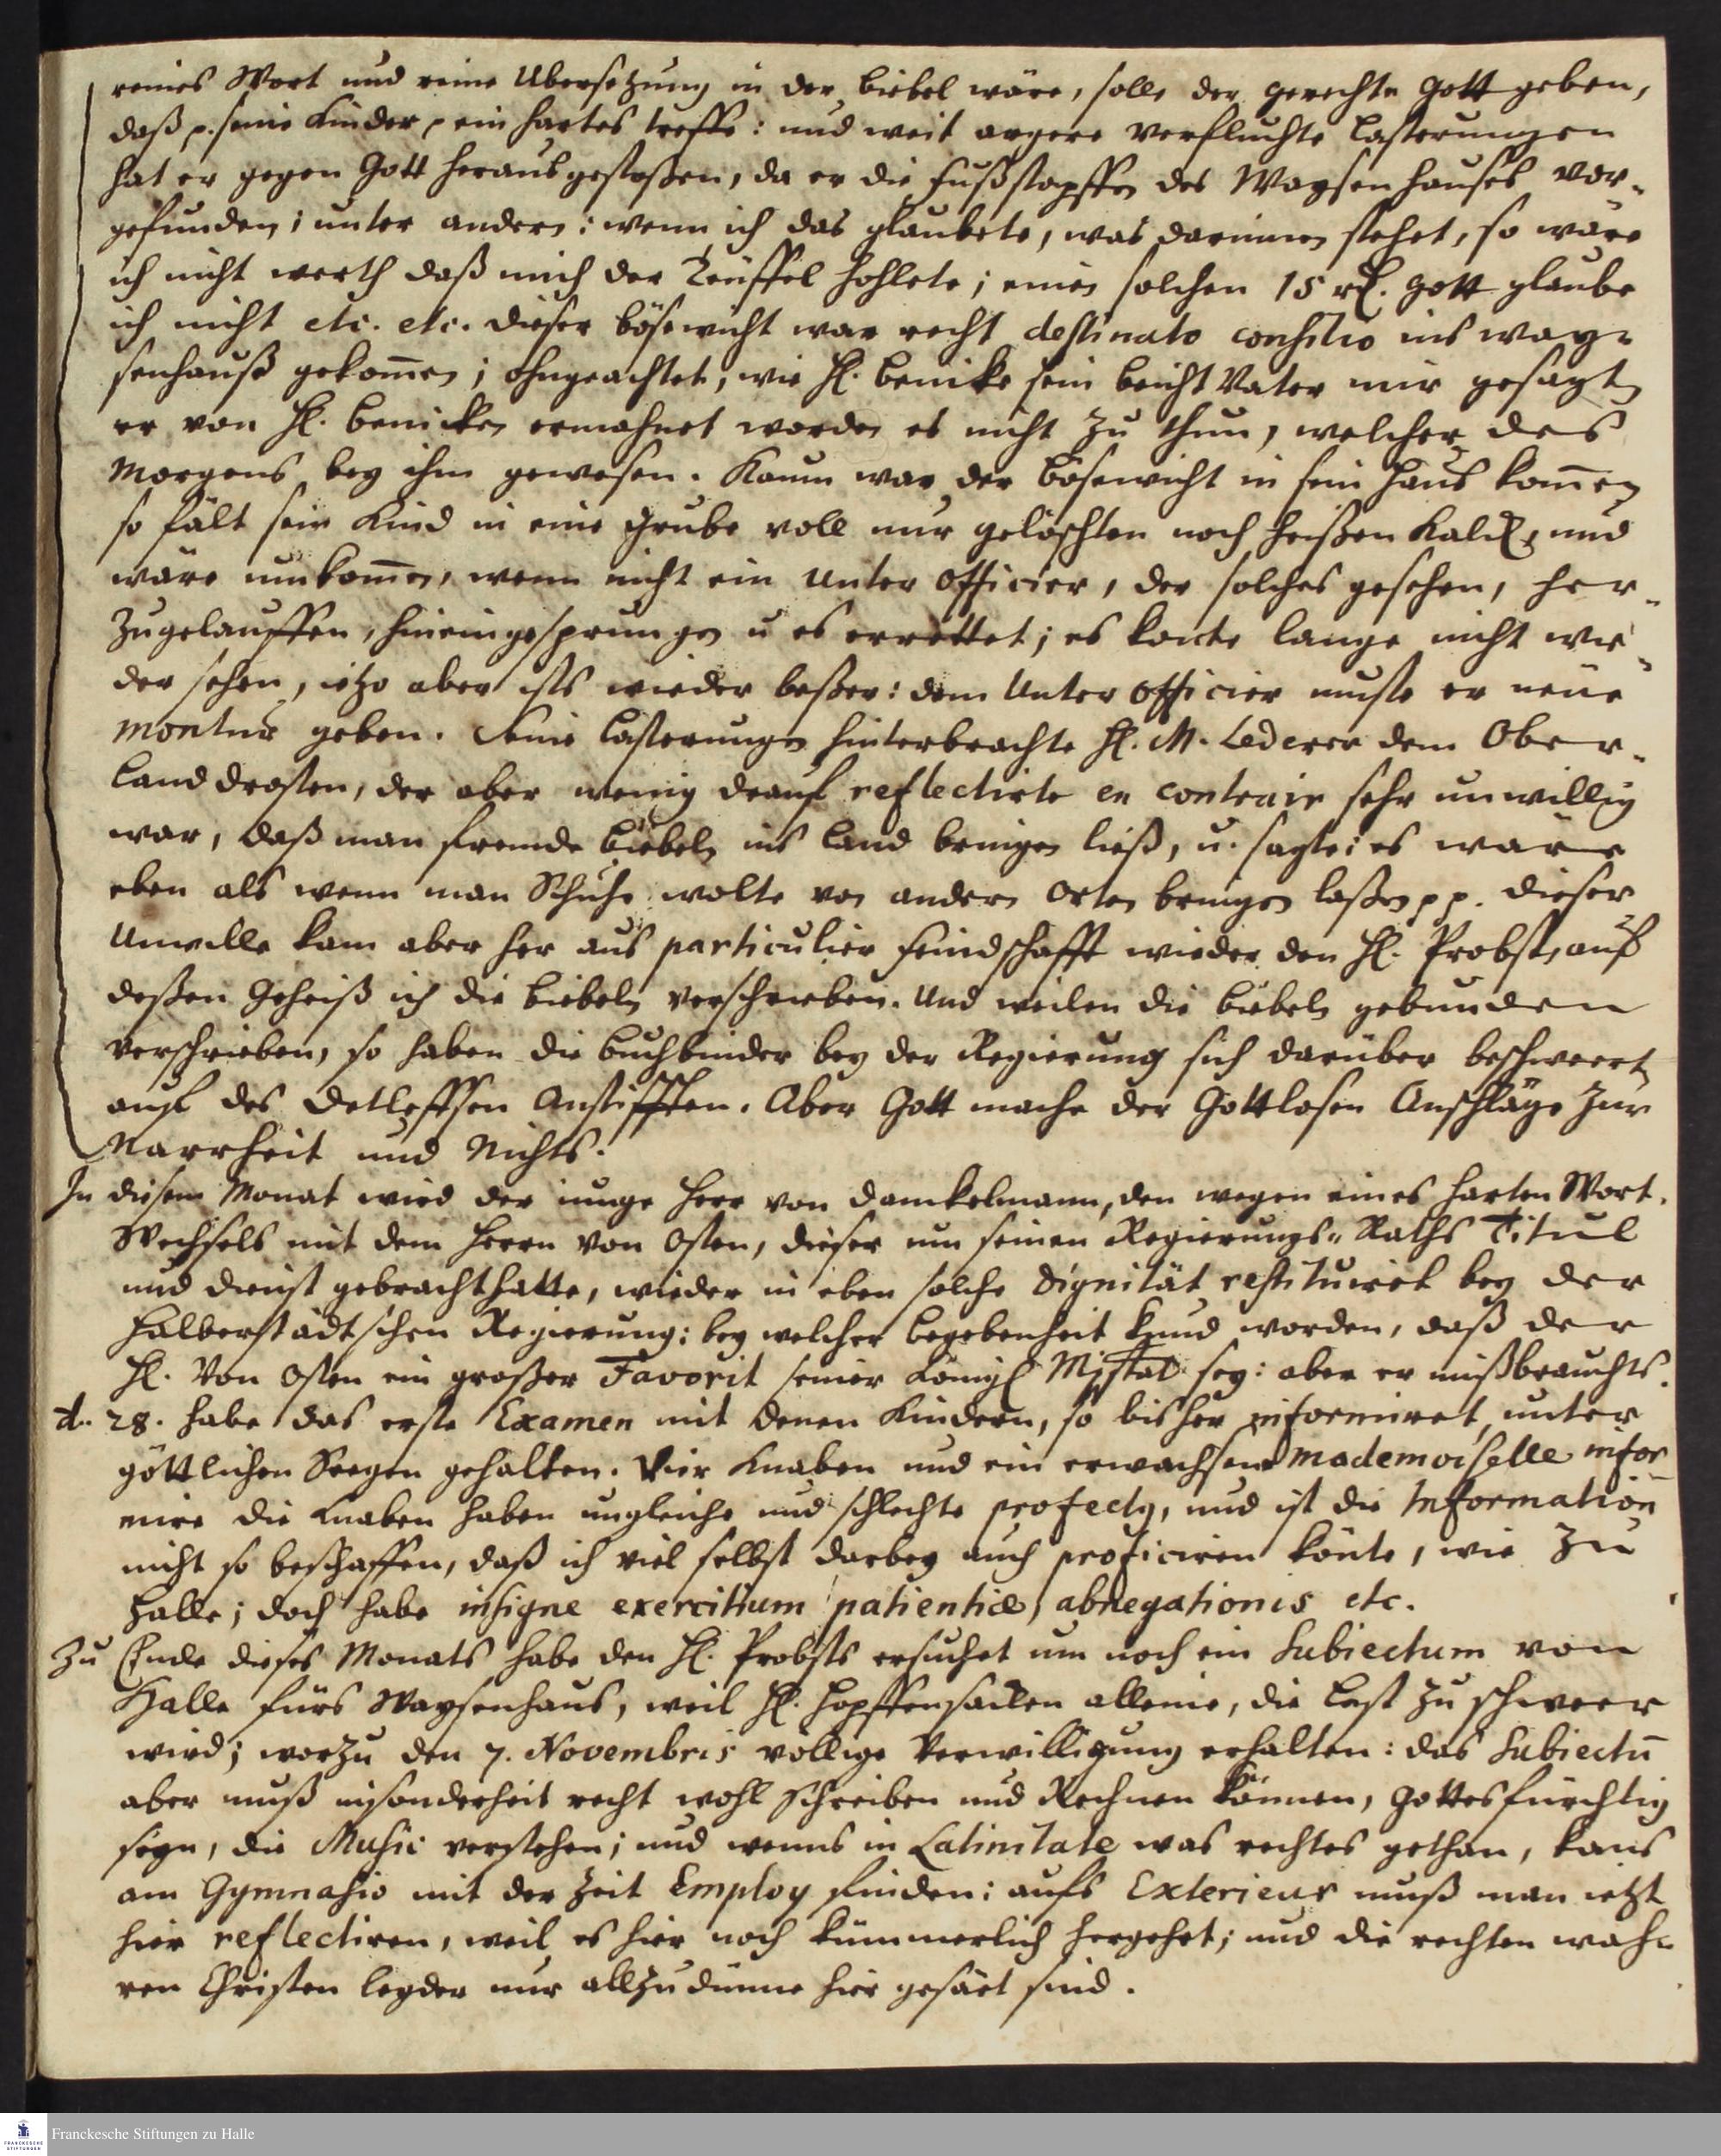 reines Wort und reine Ubersetzung in der biebel wäre, solle der gerechte Gott geben,
daß p. seine Kinder p ein hartes treffe: und weit argere verfluchte Lasterungen
hat er gegen Gott herausgestoßen, da er die Fußstapffen des Waysenhauses vor-
gefunden; unter andern: wenn ich das glaubete, was darinnen stehet, so wäre
ich nicht werth daß mich der Teuffel hohlete; einen solchen 15 rl. Gott glaube
ich nicht etc. etc. dieser bösewicht war recht destinato consilio ins way-
senhauß gekom̅en; ohngeachtet, wie H. Benicke sein beicht Vater mir gesagt,
er von H. Benicken ermahnet worden es nicht zu thun, welcher des
Morgens bey ihm gewesen. Kaum war der bösewicht in sein Hauß kom̅en
so fält sein Kind in eine Grube voll nur gelöschten noch heißen Kalck, und
wäre umkom̅en, wenn nicht ein Unter Officier, der solches gesehen, her-
zugelauffen, hineingesprungen u es errettet; es konte lange nicht wie-
der sehen, ietzo aber ists wieder beßer: dem Unter Officier muste er neue
Montur geben. Seine Lasterungen hinterbrachte H. M. Lederer dem Ober-
Land drosten, der aber wenig drauf reflectirte en contrair sehr unwillig
war, daß man fremde Biebeln ins Land bringen ließ, u. sagte: es wäre
eben als wenn man Schuhe wolte von andern Orten bringen laßen pp. dieser
Unwille kam aber her aus particulier feindschafft wieder den H. Probst, auf
deßen Geheiß ich die biebeln verschrieben. Und weilen die biebeln gebunden
verschrieben, so haben die buchbinder bey der Regierung sich darüber beschwert
auf des Detleffsen Anstifften. Aber Gott mache der Gottlosen Anschläge zur
Narrheit und Nichts.
In diesem Monat wird der iunge Herr von Danckelmann, den wegen eines harten Wort-
Wechsels mit dem Herrn von Osten, dieser um seinen Regierungs-Raths Titul
und dienst gebracht hatte, wieder in eben solche Dignität restituiret bey der
Halberstädtschen Regierung: bey welcher begebenheit kund worden, daß der
H. Von Osten ein großer Favorit seiner Königl Mjstat sey: aber er mißbrauchts.
d. 28. habe das erste Examen mit denen Kindern, so bisher informiret, unter
göttlichen Seegen gehalten. Vier Knaben und ein erwachsene mademoiselle infor-
mire die Knaben haben ungleiche und schlechte profectg, und ist die Information
nicht so beschaffen, daß ich viel selbst darbey auch proficiren könte, wie zu
Halle; doch habe insigne exercitium patientiæ, abnegationis etc.
Zu Ende dieses Monats habe den H. Probsts ersuchet um noch ein Subiectum von
Halle fürs Waysenhaus, weil H. Hopffensacken alleine, die Last zu schweer
wird; worzu den 7. Novembris völlige Verwilligung erhalten: das Subiectu̅
aber muß insonderheit recht wohl schreiben und Rechnen können, Gottesfürchtig
seyn, die Music verstehen; und wenns in Latinitate was rechtes gethan, kans
am Gymnasio mit der Zeit Employ finden: aufs Exterieur muß man ietzt
hier reflectiren, weil es hier noch kümmerlich hergehet; und die rechten wah-
ren Christen leyder nur allzu dünne hier gesäet sind.
Franckesche Stiftungen zu Halle